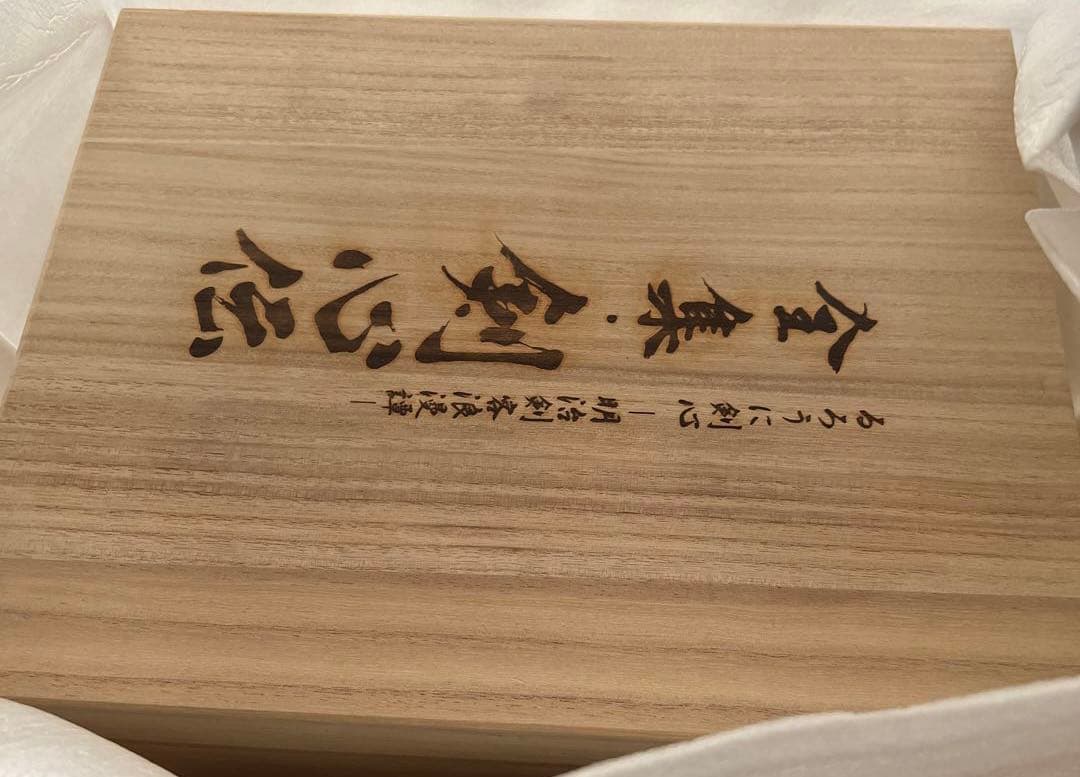 全集・剣心伝
るろうに剣心―明治剣客浪漫譚―